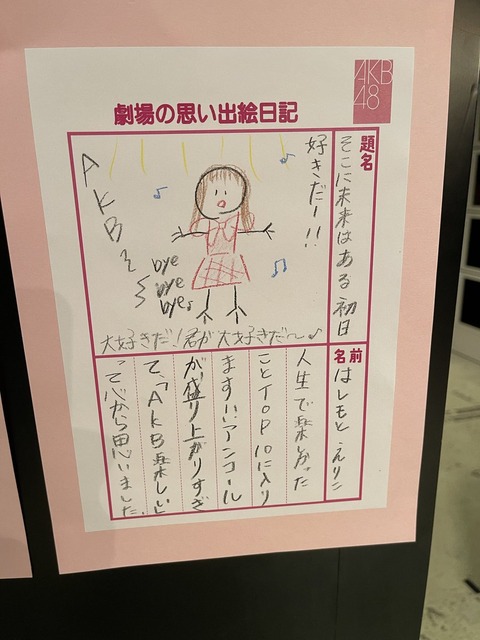 AKB
48
劇場の思い出絵日記
題名
そこに未来はある 初日
好きだー!!
AKB
bye
bye
byes
大好きだ!君が大好きだ〜♪
名前
はしもと えりこ
人生で楽しかった
ことTOP10に入り
ます!!アンコール
が盛り上がりすぎ
て、「AKB楽しい」
って心から思いました。